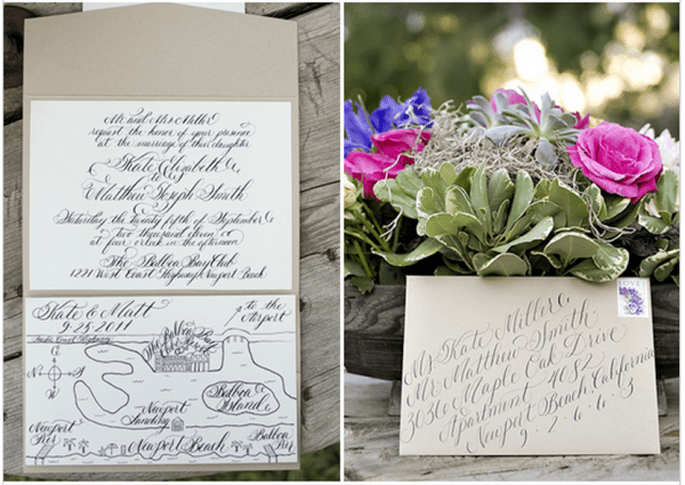 Mr and Mrs Miller
request the honor of your presence
at the marriage of their daughter
Kate Elizabeth
to
Matthew Joseph Smith
Saturday the twenty fifth of September
two thousand eleven
at four o'clock in the afternoon
The Balboa Bay Club
1221 West Coast Highway Newport Beach
Kate & Matt
9·25·2011
to the
Airport
Pacific Coast Highway
The Balboa Bay
Club
N
S
Balboa
Island
Newport
Landing
Newport
Pier
Newport Beach
Balboa
Pier
LOVE
Ms. Kate Miller
Mr. Matthew Smith
3036 Maple Oak Drive
Apartment 4032
Newport Beach, California
9·2·6·6·3